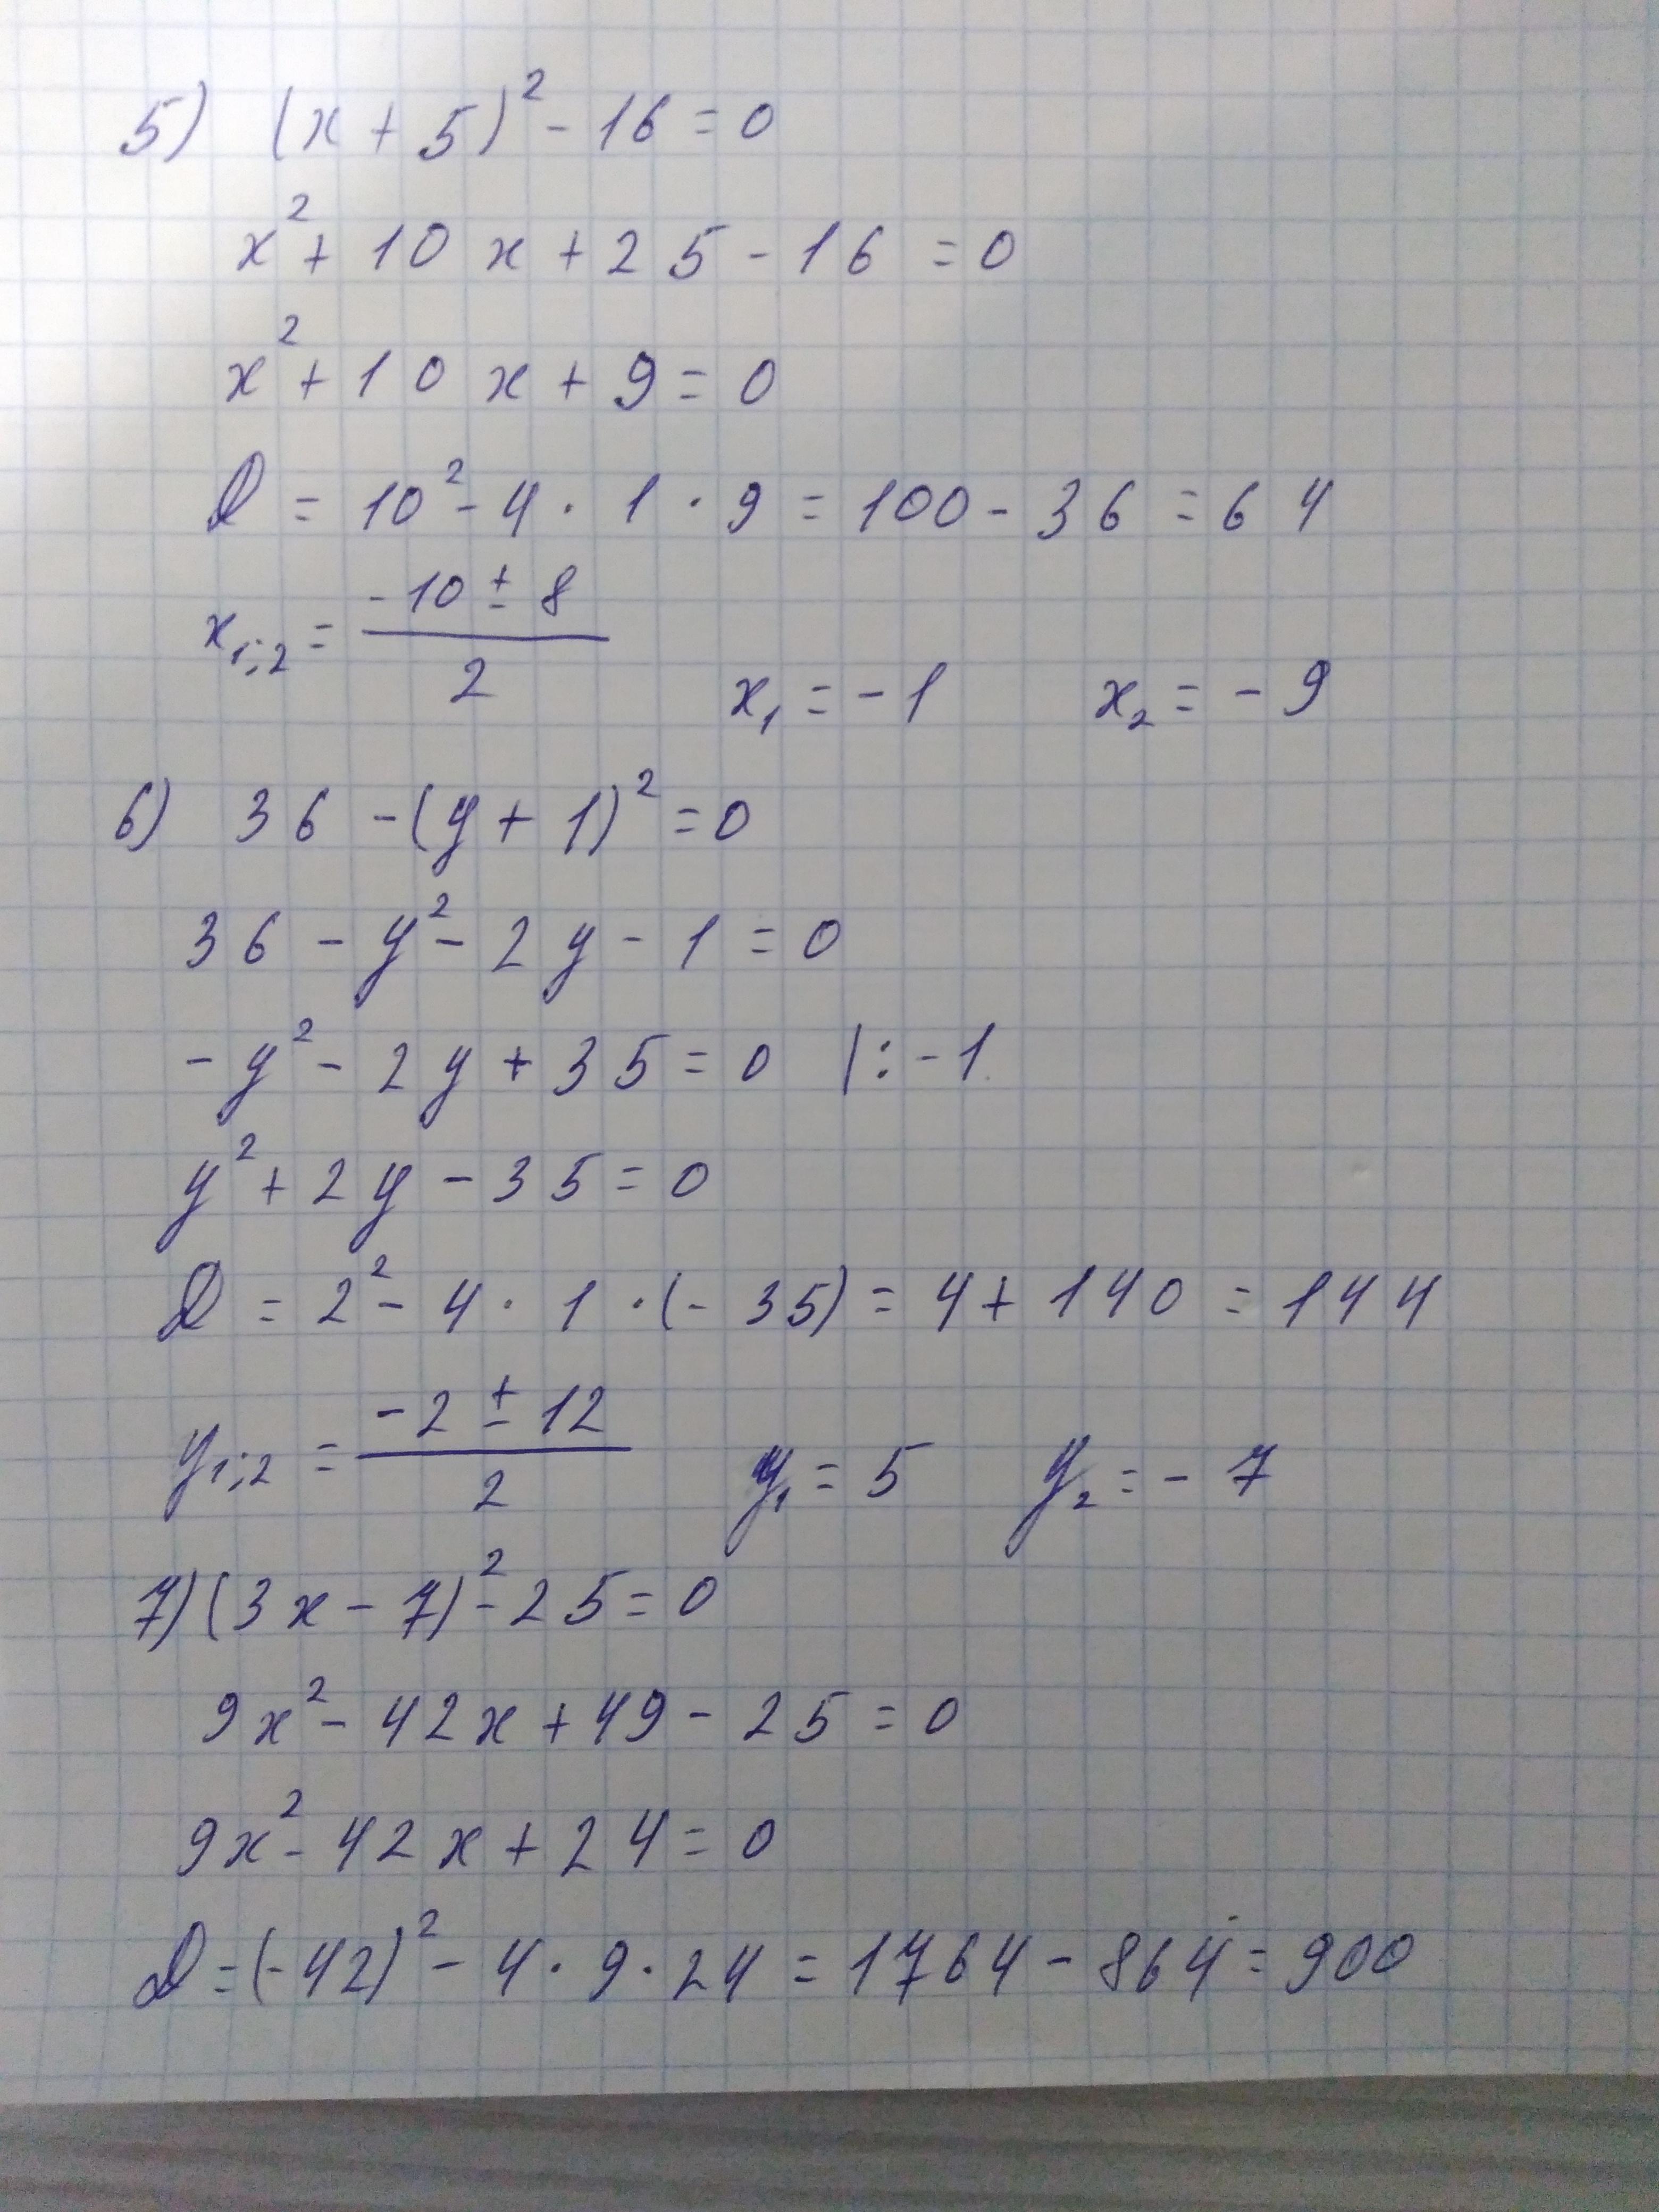 5) (x + 5)² - 16 = 0
x² + 10x + 25 - 16 = 0
x² + 10x + 9 = 0
D = 10² - 4 · 1 · 9 = 100 - 36 = 64
x₁;₂ = (-10 ± 8)/2 x₁ = -1 x₂ = -9
6) 36 - (y + 1)² = 0
36 - y² - 2y - 1 = 0
-y² - 2y + 35 = 0 |: -1
y² + 2y - 35 = 0
D = 2² - 4 · 1 · (-35) = 4 + 140 = 144
y₁;₂ = (-2 ± 12)/2 y₁ = 5 y₂ = -7
7) (3x - 7)² - 25 = 0
9x² - 42x + 49 - 25 = 0
9x² - 42x + 24 = 0
D = (-42)² - 4 · 9 · 24 = 1764 - 864 = 900